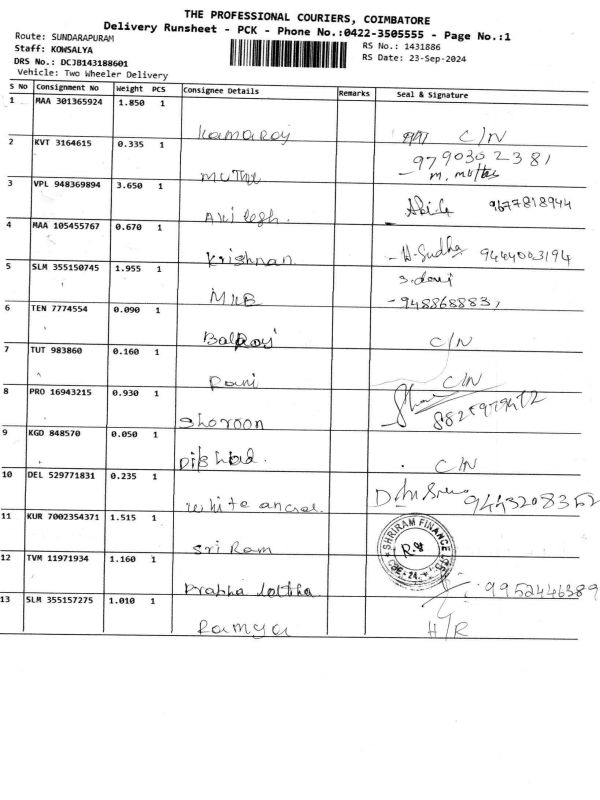 THE PROFESSIONAL COURIERS, COIMBATORE
Delivery Runsheet - PCK - Phone No.:0422-3505555 - Page No.:1
Route: SUNDARAPURAM
RS No.: 1431886
Staff: KOWSALYA
RS Date: 23-Sep-2024
DRS No.: DCJB143188601
Vehicle: Two Wheeler Delivery
S No Consignment No Weight PCS Consignee Details Remarks Seal & Signature
1 MAA 301365924 1.850 1
Kamaraj C/N
2 KVT 3164615 0.335 1
9790302381
Muthu m. muthu
3 VPL 948369894 3.650 1
Akilesh. 9677818944
4 MAA 105455767 0.670 1
Krishnan - H. Sudha 9444003194
5 SLM 355150745 1.955 1
S. devi
MKB - 948868883
6 TEN 7774554 0.090 1
Balraj C/N
7 TUT 983860 0.160 1
Rani C/N
8 PRO 16943215 0.930 1
Sharoon
9 KGD 848570 0.050 1
C/N
10 DEL 529771831 0.235 1
White 9443208352
11 KUR 7002354371 1.515 1
Sri Ram
SHRIRAM FINANCE LTD
12 TVM 11971934 1.160 1
Prabha lattha 9952446389
13 SLM 355157275 1.010 1
Ramya H/R